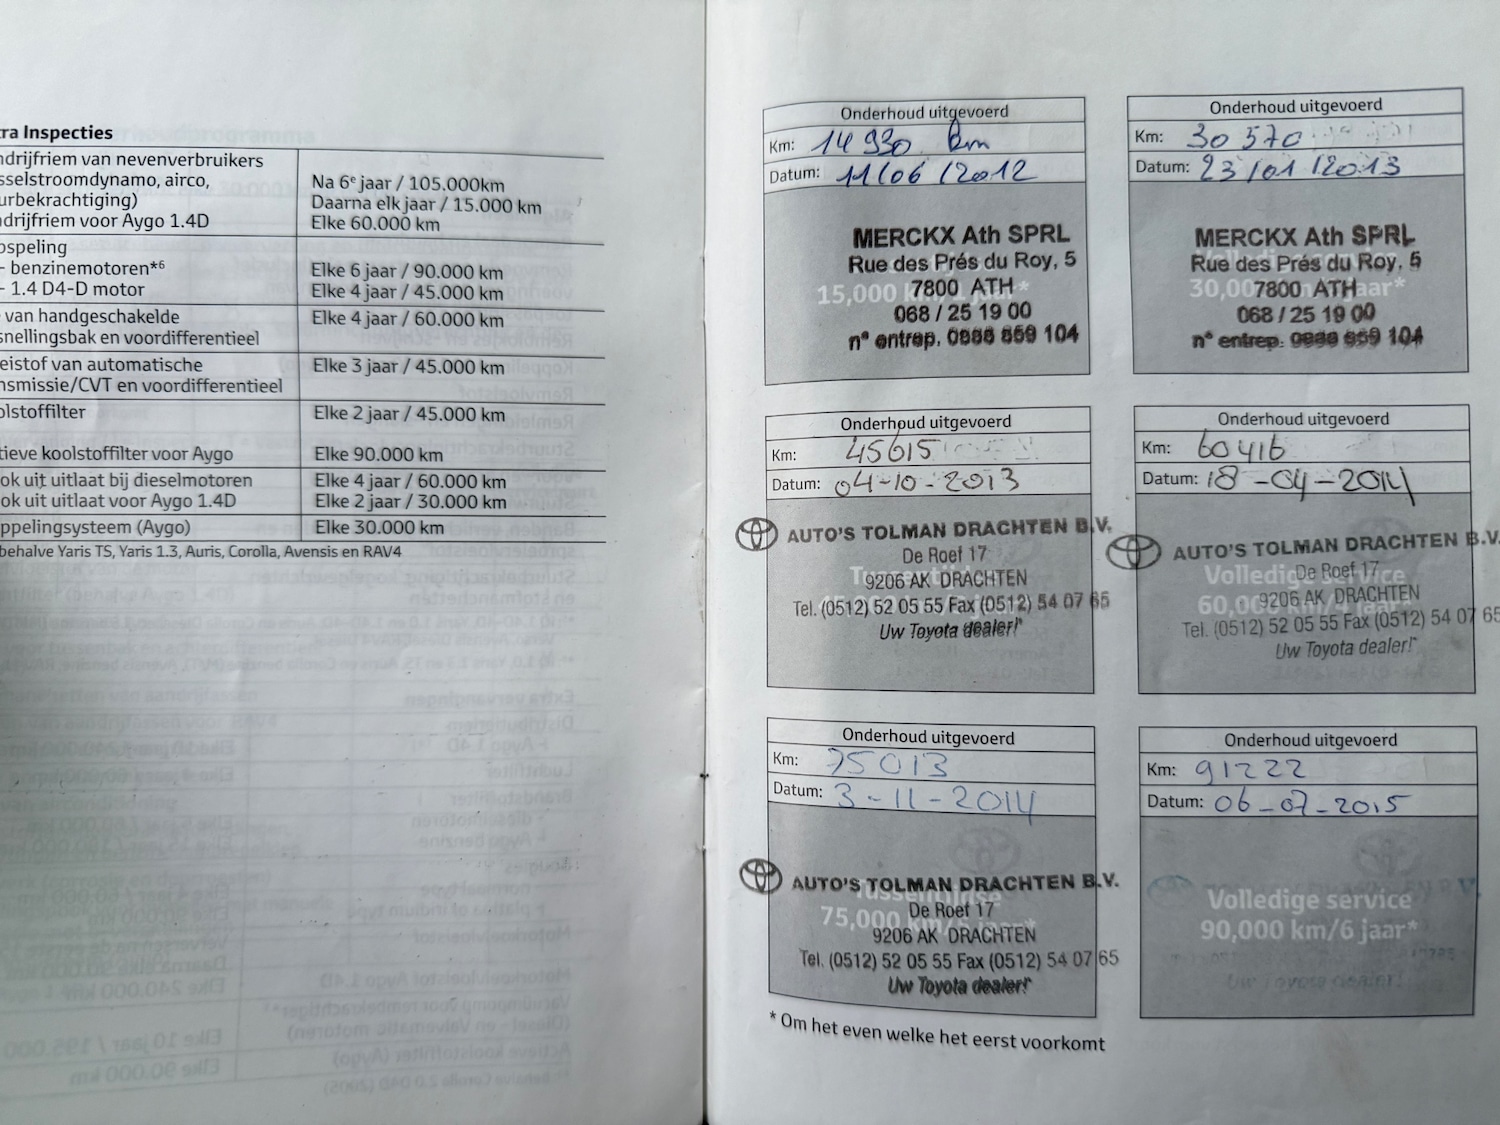 tra Inspecties
ndrijfriem van nevenverbruikers
sselstroomdynamo, airco,
urbekrachtiging)
Na 6e jaar / 105.000km
Daarna elk jaar / 15.000 km
ndrijfriem voor Aygo 1.4D
Elke 60.000 km
pspeling
- benzinemotoren*6
Elke 6 jaar / 90.000 km
- 1.4 D4-D motor
Elke 4 jaar / 45.000 km
van handgeschakelde
snellingsbak en voordifferentieel
Elke 4 jaar / 60.000 km
eistof van automatische
nsmissie/CVT en voordifferentieel
Elke 3 jaar / 45.000 km
olstoffilter
Elke 2 jaar / 45.000 km
tieve koolstoffilter voor Aygo
Elke 90.000 km
ook uit uitlaat bij dieselmotoren
Elke 4 jaar / 60.000 km
ook uit uitlaat voor Aygo 1.4D
Elke 2 jaar / 30.000 km
ppelingsysteem (Aygo)
Elke 30.000 km
behalve Yaris TS, Yaris 1.3, Auris, Corolla, Avensis en RAV4
Onderhoud uitgevoerd
Km: 14 930 km
Datum: 11/06/2012
MERCKX Ath SPRL
Rue des Prés du Roy, 5
7800 ATH
15,000 km/1 jaar*
068 / 25 19 00
n° entrep. 0888 859 104
Onderhoud uitgevoerd
Km: 30 570
Datum: 23/01/2013
MERCKX Ath SPRL
Volledige service
Rue des Prés du Roy, 5
7800 ATH
30,000 km/ jaar*
068 / 25 19 00
n° entrep. 0888 859 104
Onderhoud uitgevoerd
Km: 45615
Datum: 04-10-2013
AUTO'S TOLMAN DRACHTEN B.V.
De Roef 17
9206 AK DRACHTEN
Tel. (0512) 52 05 55 Fax (0512) 54 07 65
Uw Toyota dealer!
Onderhoud uitgevoerd
Km: 60416
Datum: 18-04-2014
AUTO'S TOLMAN DRACHTEN B.V.
De Roef 17
Volledige service
9206 AK DRACHTEN
60,000 km/4 jaar*
Tel. (0512) 52 05 55 Fax (0512) 54 07 65
Uw Toyota dealer!
Onderhoud uitgevoerd
Km: 75013
Datum: 3-11-2014
AUTO'S TOLMAN DRACHTEN B.V.
De Roef 17
75,000 km/5 jaar*
9206 AK DRACHTEN
Tel. (0512) 52 05 55 Fax (0512) 54 07 65
Uw Toyota dealer!
Onderhoud uitgevoerd
Km: 91222
Datum: 06-07-2015
Volledige service
90,000 km/6 jaar*
Uw Toyota dealer!
* Om het even welke het eerst voorkomt